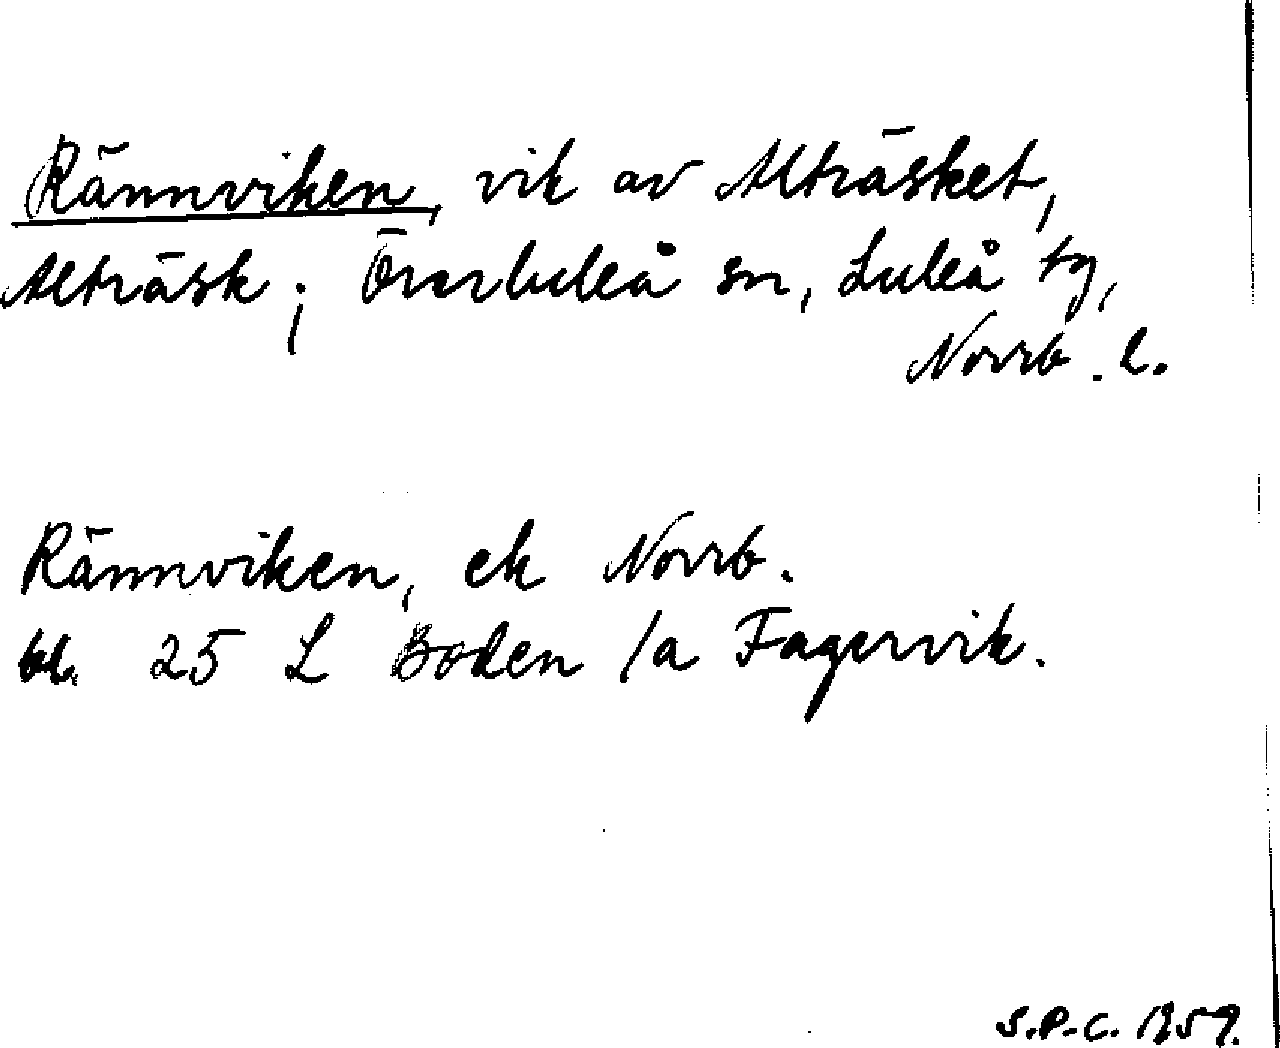 Rännviken, vik av Alträsket,
Alträsk; Överluleå sn, Luleå tg,
Norrb. l.
Rännviken, ek Norrb.
bl. 25 L Boden /a Fagervik.
S.P.C. 1959.